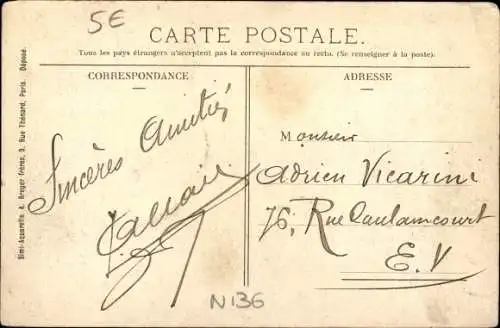 5€
CARTE POSTALE.
Tous les pays étrangers n'acceptent pas la correspondance au recto. (Se renseigner à la poste).
CORRESPONDANCE
ADRESSE
Simi-Aquarelle A. Breger frères, 9, Rue Thénard, Paris. Déposé.
Sincères Amitiés
Monsieur
Adrien Vicarini
76, Rue Caulaincourt
E.V
N136